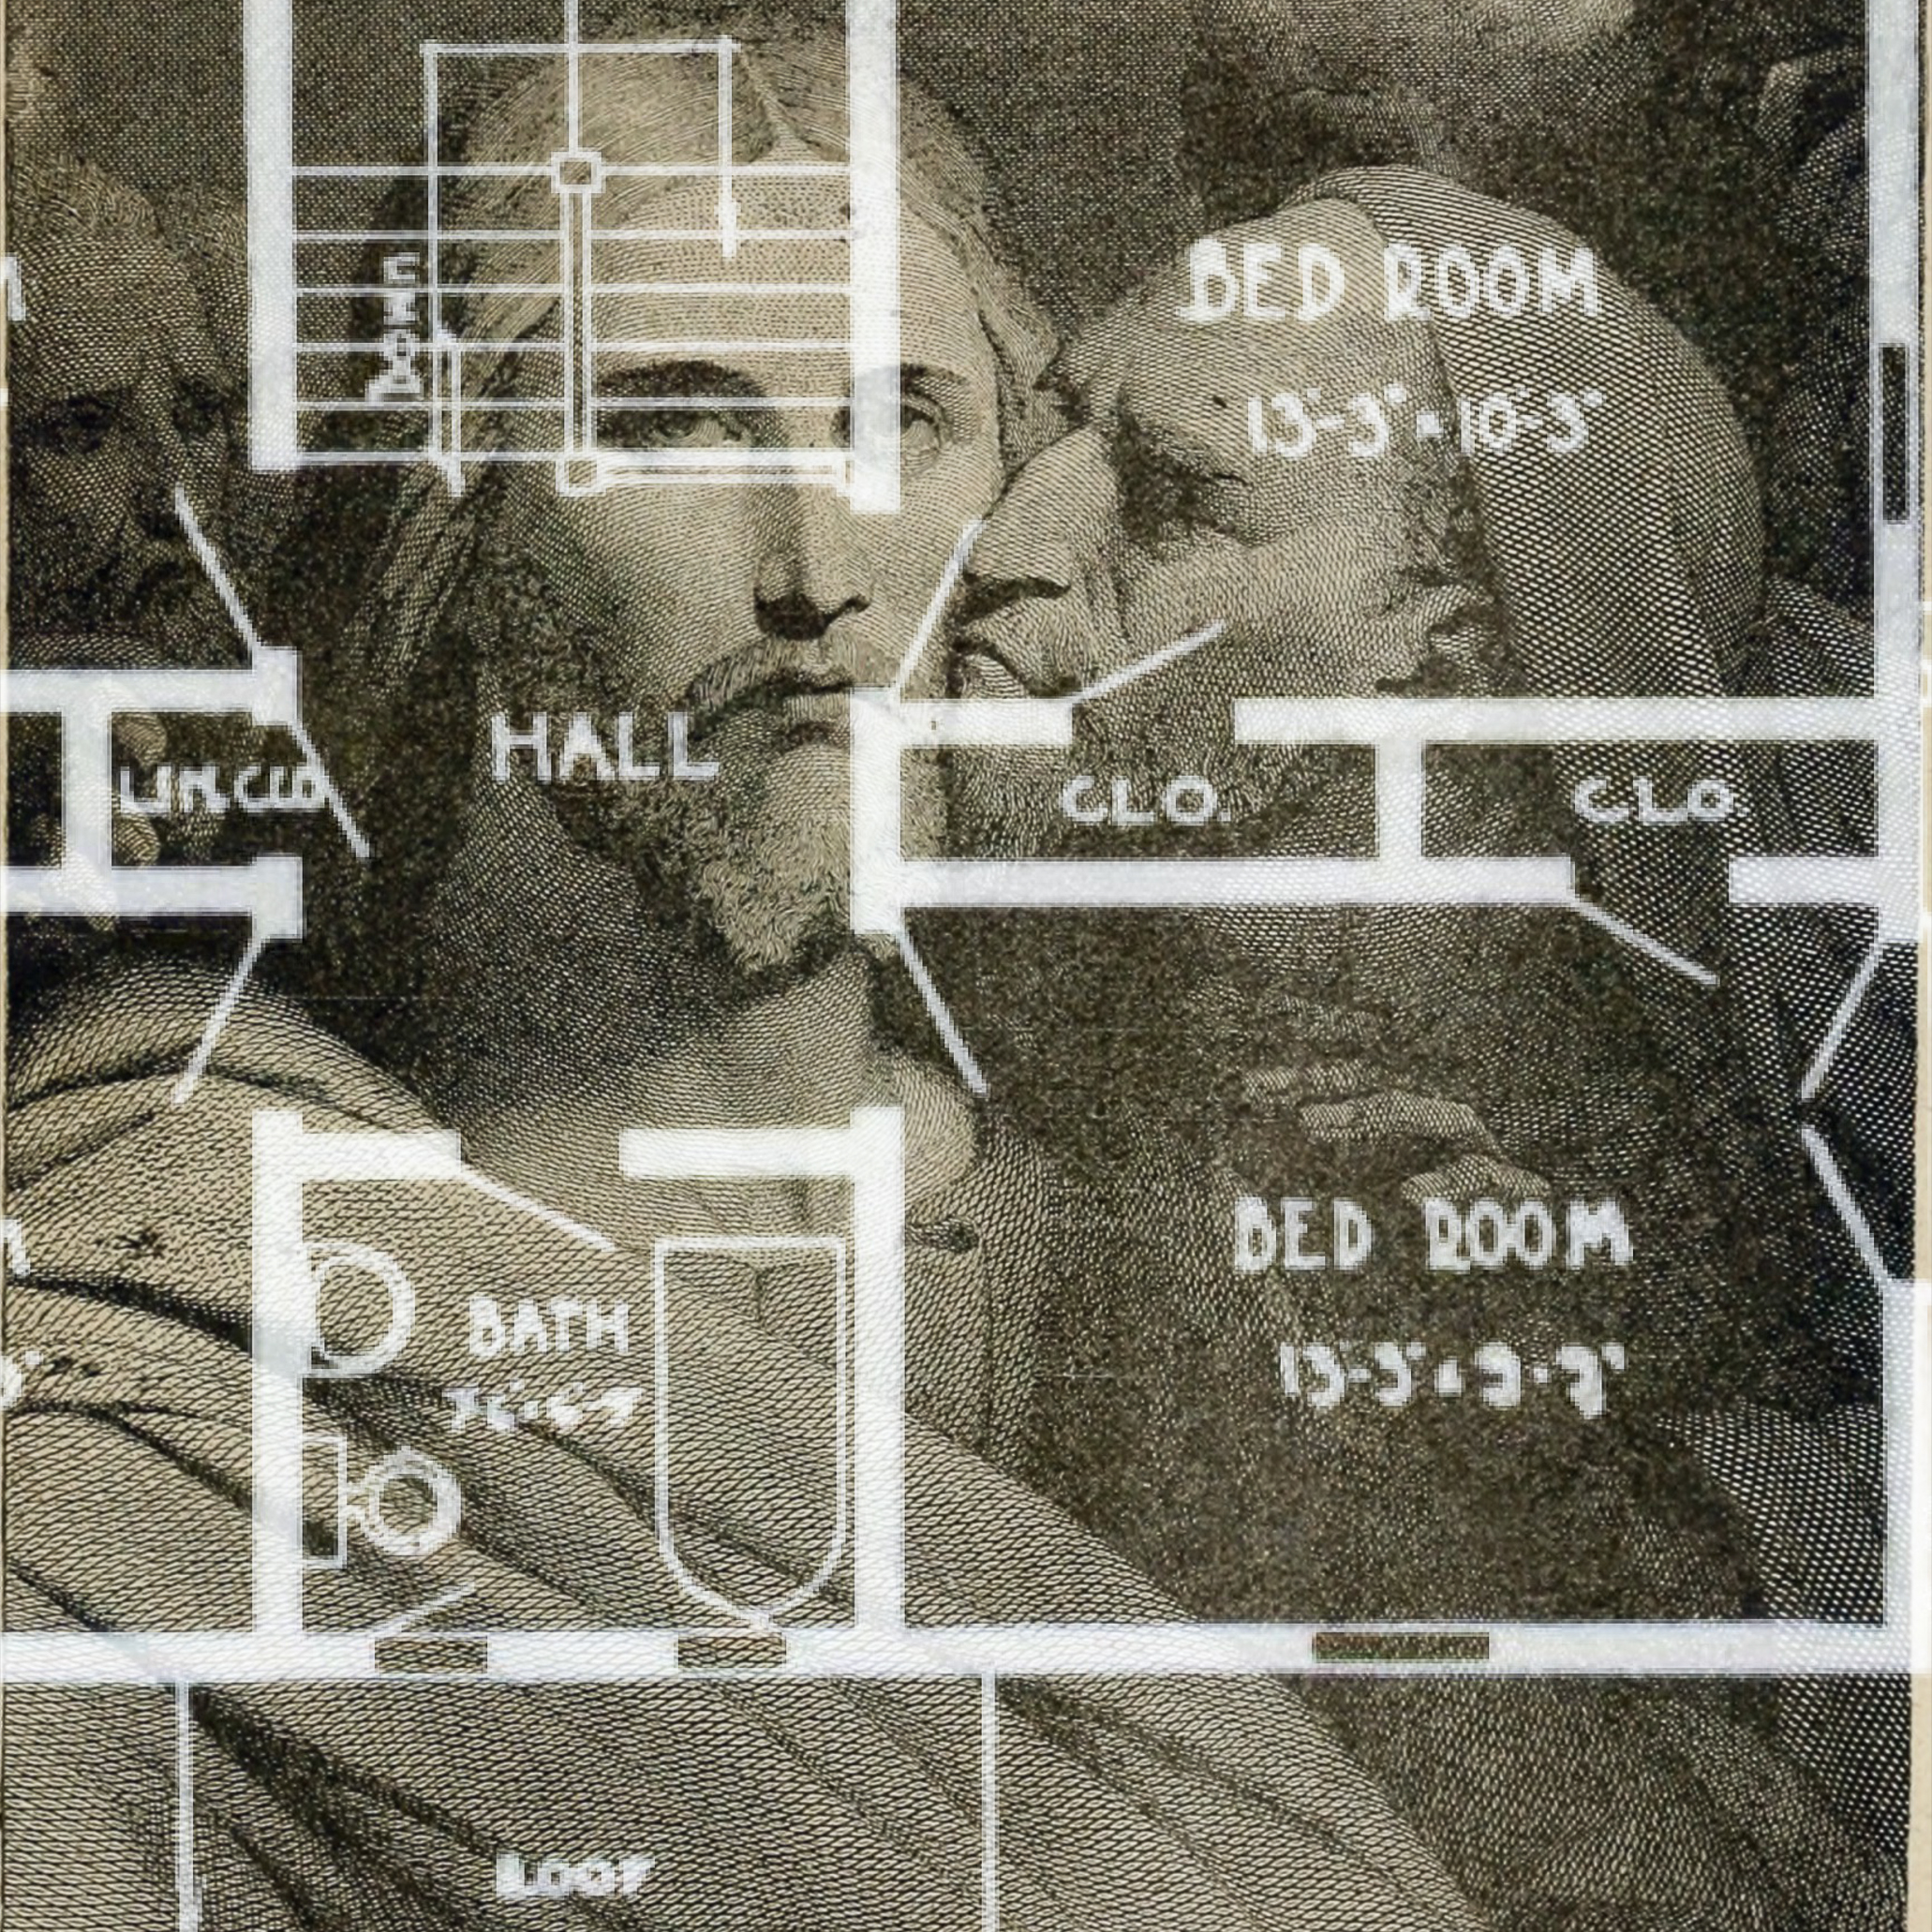 BED ROOM
13'-3" • 10'-3"
HALL
LIN CLO
CLO.
CLO.
BED ROOM
BATH
ROOF